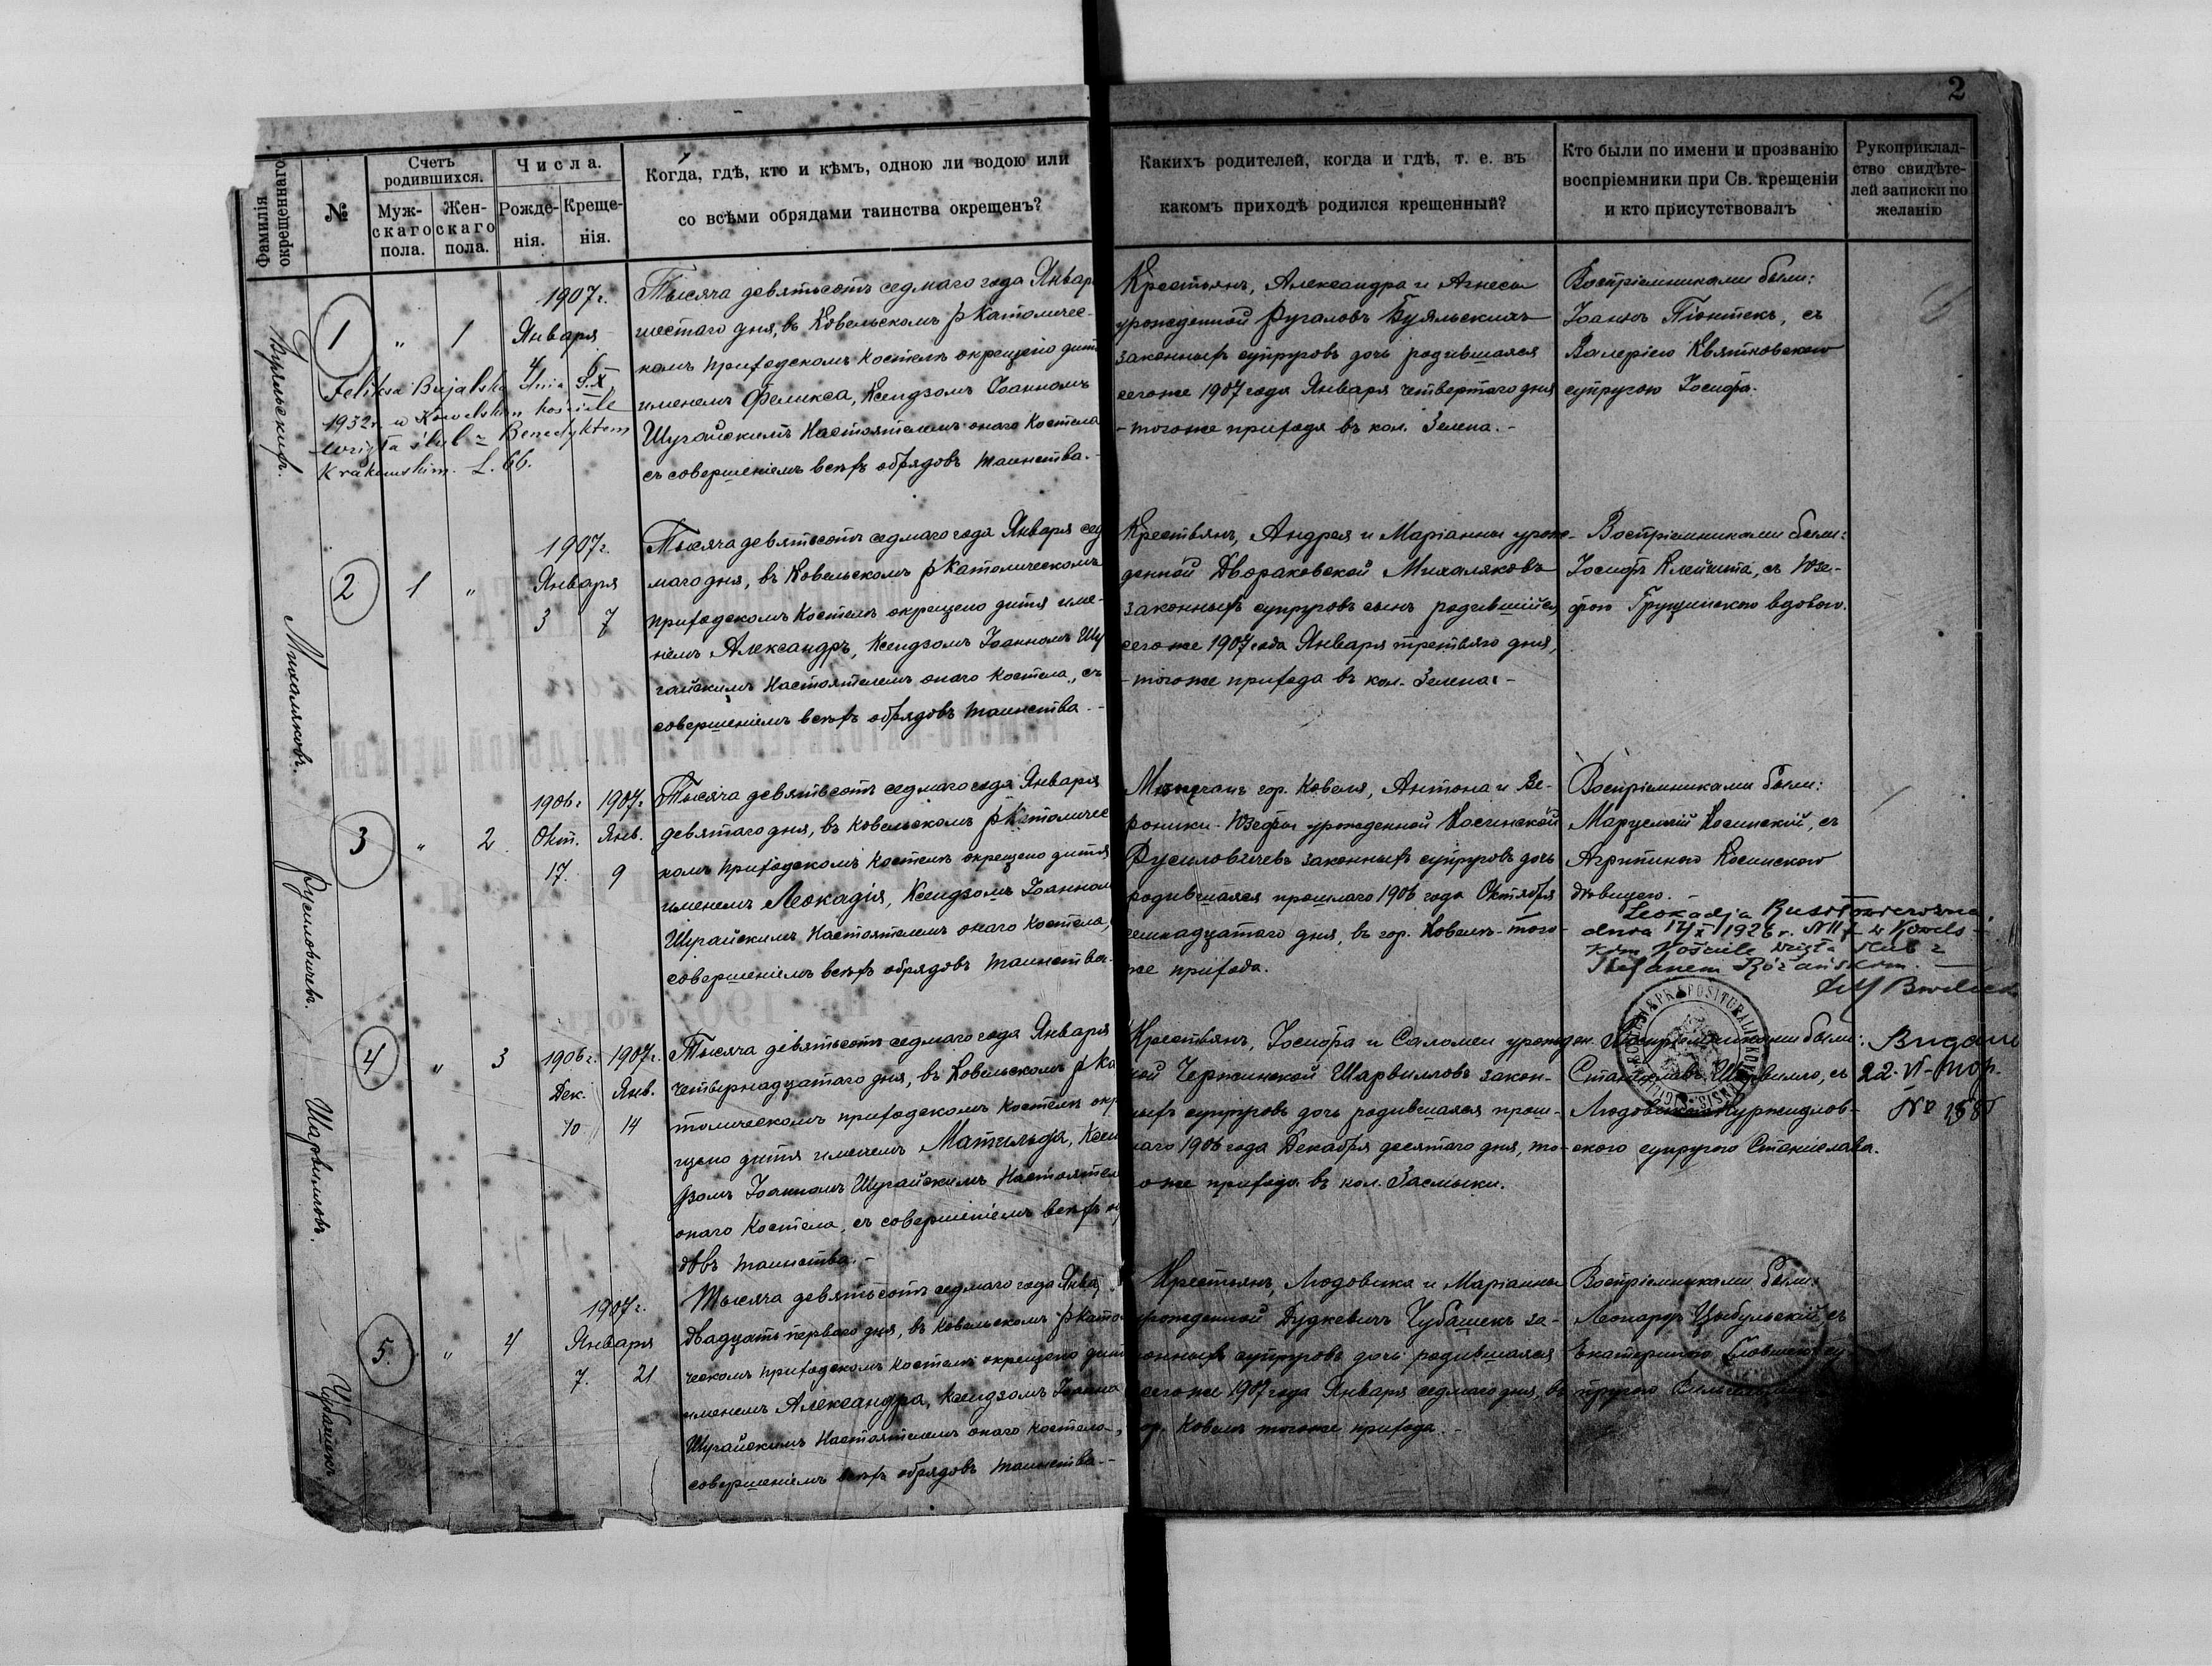 2
Фамилія окрещеннаго
№
Счетъ родившихся.
Мужскаго пола.
Женскаго пола.
Числа.
Рожденія.
Крещенія.
Когда, гдѣ, кто и кѣмъ, одною ли водою или
со всѣми обрядами таинства окрещенъ?
Какихъ родителей, когда и гдѣ, т. е. въ
какомъ приходѣ родился крещенный?
Кто были по имени и прозванію
воспріемники при Св. крещеніи
и кто присутствовалъ
Рукоприклад-
ство свидѣте-
лей записки по
желанію
Буяльскихъ.
1
" 1
1907 г.
Января
4 6
Feliksa Bujalska dnia 9.X
1932 r. w Kowelskim kościele
wzięła ślub z Benedyktem
Krakowskim. L. 66.
Тысяча девятьсотъ седмаго года Январ
шестаго дня, въ Ковельскомъ р Католичес-
комъ приходскомъ Костелѣ окрещено дитя
именемъ Феликса, Ксендзомъ Іоанномъ
Шугайскимъ Настоятелемъ онаго Костела
съ совершеніемъ всѣхъ обрядовъ таинства.-
Крестьянъ, Александра и Агнесы
урожденной Ругаловъ Буяльскихъ
законныхъ супруговъ дочь родившаяся
сегоже 1907 года Января четвертаго дня
- тогоже прихода въ кол. Зелена. -
Воспріемниками были:
Іоаннъ Піонтекъ, съ
Валеріею Квятковскою
супругою Іосифа.
Михаляковъ.
2
1 "
1907 г.
Января
3 7
Тысяча девятьсотъ седмаго года Января сед
маго дня, въ Ковельскомъ р Католическомъ
приходскомъ Костелѣ окрещено дитя име-
немъ Александръ, Ксендзомъ Іоанномъ Шу
гайскимъ Настоятелемъ онаго Костела, съ
совершеніемъ всѣхъ обрядовъ таинства -
Крестьянъ, Андрея и Маріанны урож-
денной Двораковской Михаляковъ
законныхъ супруговъ сынъ родившійся
сегоже 1907 года Января третьяго дня,
- тогоже прихода въ кол. Зелена. -
Воспріемниками были:
Іосифъ Клейшта, съ Юзе-
фою Грущинскою вдовою.
Русиловичевъ.
3
" 2
1906 г. 1907 г.
Окт. Янв.
17. 9
Тысяча девятьсотъ седмаго года Января
девятаго дня, въ Ковельскомъ р Католичес
комъ приходскомъ Костелѣ окрещено дитя
именемъ Леокадія, Ксендзомъ Іоанном
Шугайскимъ Настоятелемъ онаго Костела,
совершеніемъ всѣхъ обрядовъ таинства-
Мѣщанъ гор. Ковеля, Антона и Ве-
роники-Юзефы урожденной Косинской
Русиловичевъ законныхъ супруговъ дочь
родившаяся прошлаго 1906 года Октября
семнадцатаго дня, въ гор. Ковелѣ-того-
же прихода.
Воспріемниками были:
Марцелій Косинскій, съ
Агрипиною Косинскою
дѣвицею. -
Leokadja Rusiłowiczówna
dnia 17/X 1926 r. w Kowels-
kim Kościele wzięła ślub z
Stefanem Różańskim.
Шарвилловъ.
4
" 3
1906 г. 1907 г.
Дек. Янв.
10 14
Тысяча девятьсотъ седмаго года Января
четырнадцатаго дня, въ Ковельскомъ р Ка
толическомъ приходскомъ Костелѣ окр
щено дитя именемъ Матильда, Ксен
дзомъ Іоанномъ Шугайскимъ Настоятел
онаго Костела, съ совершеніемъ всѣхъ о
довъ таинства. -
Крестьянъ, Іосифа и Саломеи урожден.
ной Чержинской Шарвилловъ закон-
ныхъ супруговъ дочь родившаяся прош-
лаго 1906 года Декабря десятаго дня, то-
оже прихода въ кол. Засмыки.
Воспріемниками были:
Станиславъ Шарвилло, съ
Людовикою Куржидлов-
скою супругою Станислава.
22. VI-
№
Чубашекъ
5.
" 4
1907 г.
Января
7. 21
Тысяча девятьсотъ седмаго года Янва
двадцать перваго дня, въ Ковельскомъ р Като
ческомъ приходскомъ Костелѣ окрещено дит
именемъ Александра, Ксендзомъ Іоанно
Шугайскимъ Настоятелемъ онаго Костела,
совершеніемъ всѣхъ обрядовъ таинства.-
Крестьянъ, Людовика и Маріанны
урожденной Дудкевичъ Чубашекъ за-
онныхъ супруговъ дочь родившаяся
сегоже 1907 года Января седмаго дня, въ
ор. Ковелѣ тогоже прихода. -
Воспріемниками были:
Леонардъ Цыбульскій съ
Екатериною су-
пругою